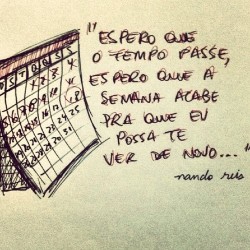 "ESPERO QUE
O TEMPO PASSE,
ESPERO QUE A
SEMANA ACABE
PRA QUE EU
POSSA TE
VER DE NOVO..."
nando reis